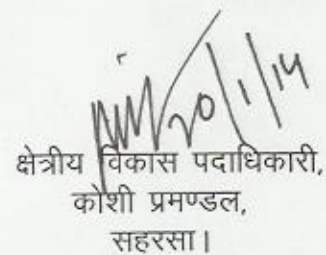 20/1/14
क्षेत्रीय विकास पदाधिकारी,
कोशी प्रमण्डल,
सहरसा।